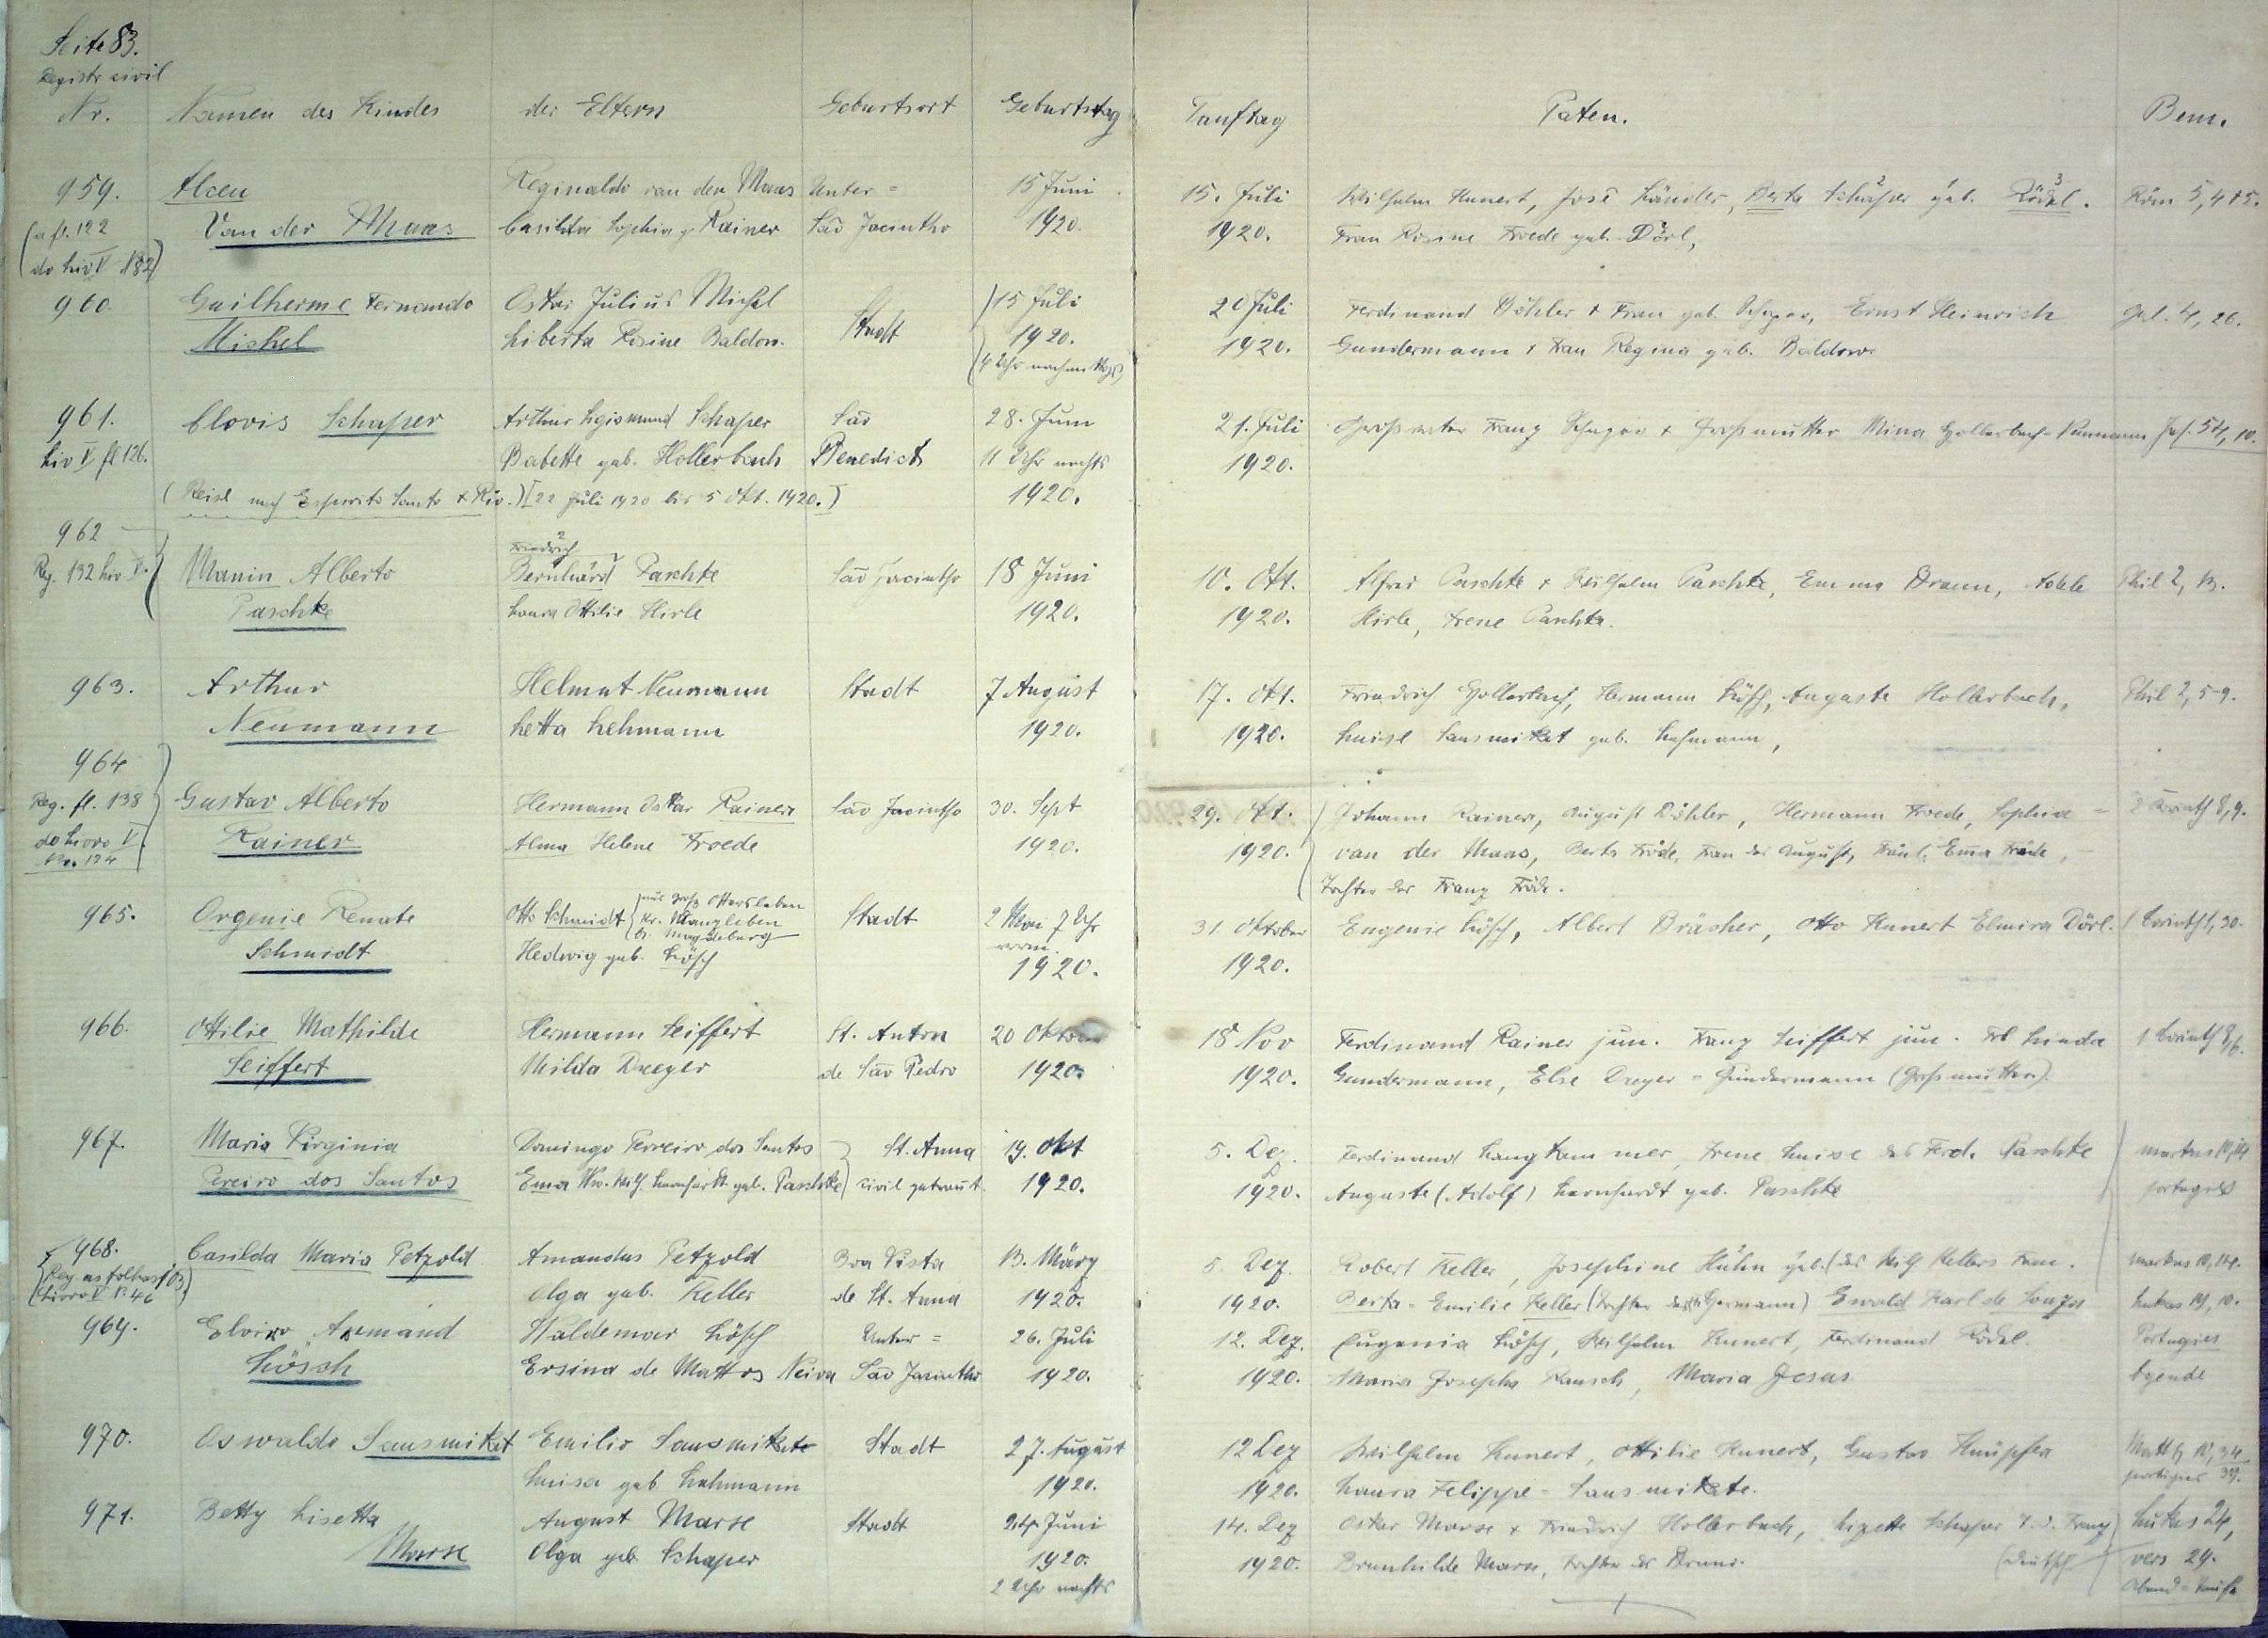 Seite 83.
Registr civil
Nr. Namen des Kindes der Eltern Geburtsort Geburtstag Tauftag Paten. Bem.
959. Alceu Reginaldo van der Maas Unter= 15 Juni 15. Juli Wilhelm Kunert, José Länder, Berta Schäper geb. Rödel. Röm 5, 4+5.
(a fl. 122 Van der Maas Casilda Sophia g. Rainer São Jacintho 1920. 1920. Frau Rosine Froede geb. Dörl,
do Liv V N82)
960. Guilherme Fernando Oskar Julius Michel Stadt 15 Juli 20 Juli Ferdinand Döhler + Frau geb. Ernst Heinrich Gal. 4, 26.
Michel Liberta Rosine Baldow. 1920. 1920. Gundermann + Frau Regina geb. Baldow
(4 Uhr nachmittgs)
961. Clovis Schaper Arthur Sigismund Schaper São 28. Juni 21. Juli Grossvater Franz Schaper + Grossmutter Mina Hollerbach-Neumann Jes. 54, 10.
Liv V fl 126. Babette geb. Hollerbach Benedicto 11 Uhr nachts 1920.
(Reise nach Espirito Santo + Rio.) [22 Juli 1920 bis 5 Okt. 1920.) 1920.
962 Friedrich
Reg. 132 Liv. V. Manin Alberto Bernhard Paschke São Jacintho 18 Juni 10. Okt. Alfred Paschke + Wilhelm Paschke, Emma Braun, Adele Phil 2, 13.
Paschke Laura Ottilie Hirle 1920. 1920. Hirle, Irene Paschke.
963. Arthur Helmut Neumann Stadt 7 August 17. Okt. Friedrich Hollerbach, Hermann Lösch, Auguste Hollerbach, Phil 2, 5-9.
Neumann Letta Lehmann 1920. 1920. Luise Sausmikat geb. Lehmann,
964
Reg. fl. 138 Gustav Alberto Hermann Oskar Rainer São Jacintho 30. Sept 29. Okt. Johann Rainer, August Döhler, Hermann Froede, Sophia = 2 Korinth 8, 9.
do Livro V Rainer Alma Helene Froede 1920. 1920. van der Maas, Berta Fröde, Frau des August, Fräul. Ema Fröde,
No. 124 Tochter des Franz Fröde.
965. Orgenie Renate Otto Schmidt aus Groß Ottersleben Kr. Wanzleben b. Magdeburg Stadt 2 Mai 7 Uhr 31. Oktober Eugenie Lösch, Albert Bräscher, Otto Kunert Elmira Dörl. 1 Corinth 1, 30.
Schmidt Hedwig geb. Lösch vorm. 1920. 1920.
966. Ottilie Mathilde Hermann Seiffert St. Anton 20 Oktober 18 Nov Ferdinand Rainer jun. Franz Seiffert jun. Frl Linda 1 Corinth 8, 6.
Seiffert Milda Dreyer de São Pedro 1920. 1920. Gundermann, Else Dreyer = Gundermann (Grossmutter).
967. Maria Virginia Domingo Perreiro dos Santos St. Anna 19. Okt 5. Dez. Ferdinand Langkammer, Irene Luise des Ferd. Paschke markus 10, 14
Pereiro dos Santos Ema Ww. Wilh. Leonhardt geb. Paschke civil getraut. 1920. 1920. Auguste (Adolf) Leonhardt geb. Paschke portugies
968. Casilda Maria Petzold Amandus Petzold Boa Vista 13. März 5. Dez. Robert Keller, Josephine Hühn geb. (des Wilh Kellers Frau. markus 10, 14.
(Reg as folhas 103 Livro V No 46) Olga geb. Keller de St. Anna 1920. 1920. Berta-Emilie Keller (Tochter des Germann) Ewald Karl de Souza Lukas 19, 10.
969. Elviro Armand Waldemar Lösch Unter= 26. Juli 12. Dez. Eugenia Lösch, Wilhelm Kunert, Ferdinand Rödel. Portugies
Lösch Ersina de Mattos Neiva São Jacintho 1920. 1920. Maria Josepha Rausch, Maria Jesus
970. Oswaldo Sausmikat Emilio Sausmikate Stadt 27. August 12 Dez Wilhelm Kunert, Ottilie Kunert, Gustav Knüpfer Matth 10, 34 39.
Luisa geb Lehmann 1920. 1920. Laura Felippe-Sausmikate. portugies
971. Betty Lisetta August Marse Stadt 24 Juni 14. Dez Oskar Marse + Friedrich Hollerbach, Lizette Schaper T. d. Franz Lukas 24,
Marse Olga geb. Schaper 1920. 1920. Brunhilde Marse, Tochter des Bruno. (deutsch vers 29.
2 Uhr nachts Abend=Taufe